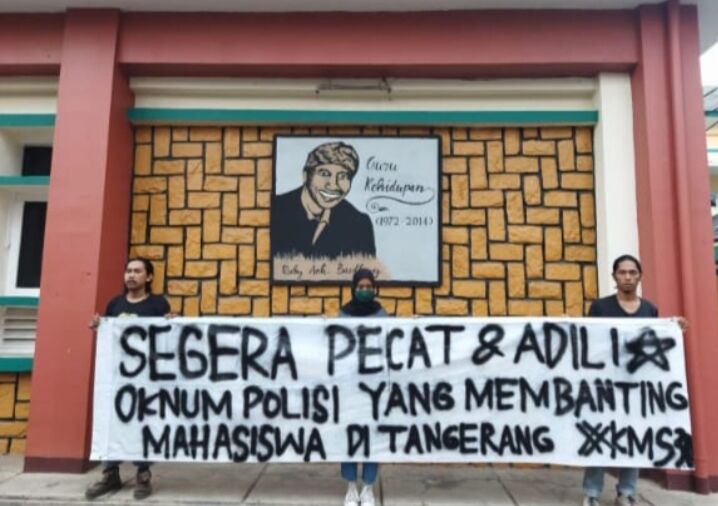 Guru
Kehidupan
(1972-2014)
SEGERA PECAT & ADILI
OKNUM POLISI YANG MEMBANTING
MAHASISWA DI TANGERANG KMS